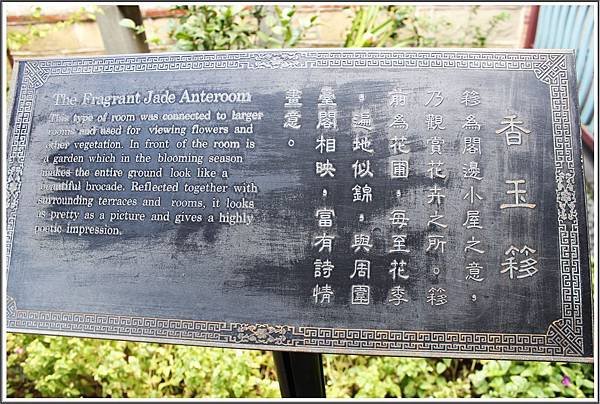 香玉簃
簃為閣邊小屋之意，
乃觀賞花卉之所。簃
前為花圃，每至花季
，遍地似錦，與周圍
臺閣相映，富有詩情
畫意。
The Fragrant Jade Anteroom
This type of room was connected to larger
rooms and used for viewing flowers and
other vegetation. In front of the room is
a garden which in the blooming season
makes the entire ground look like a
beautiful brocade. Reflected together with
surrounding terraces and rooms, it looks
as pretty as a picture and gives a highly
poetic impression.